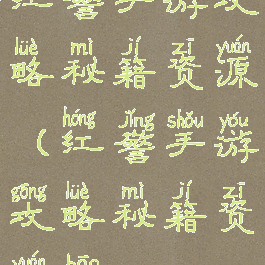 红警手游攻
lüè mì jí zī yuán
略秘籍资源
hóng jǐng shǒu yóu
(红警手游
gōng lüè mì jí zī
攻略秘籍资